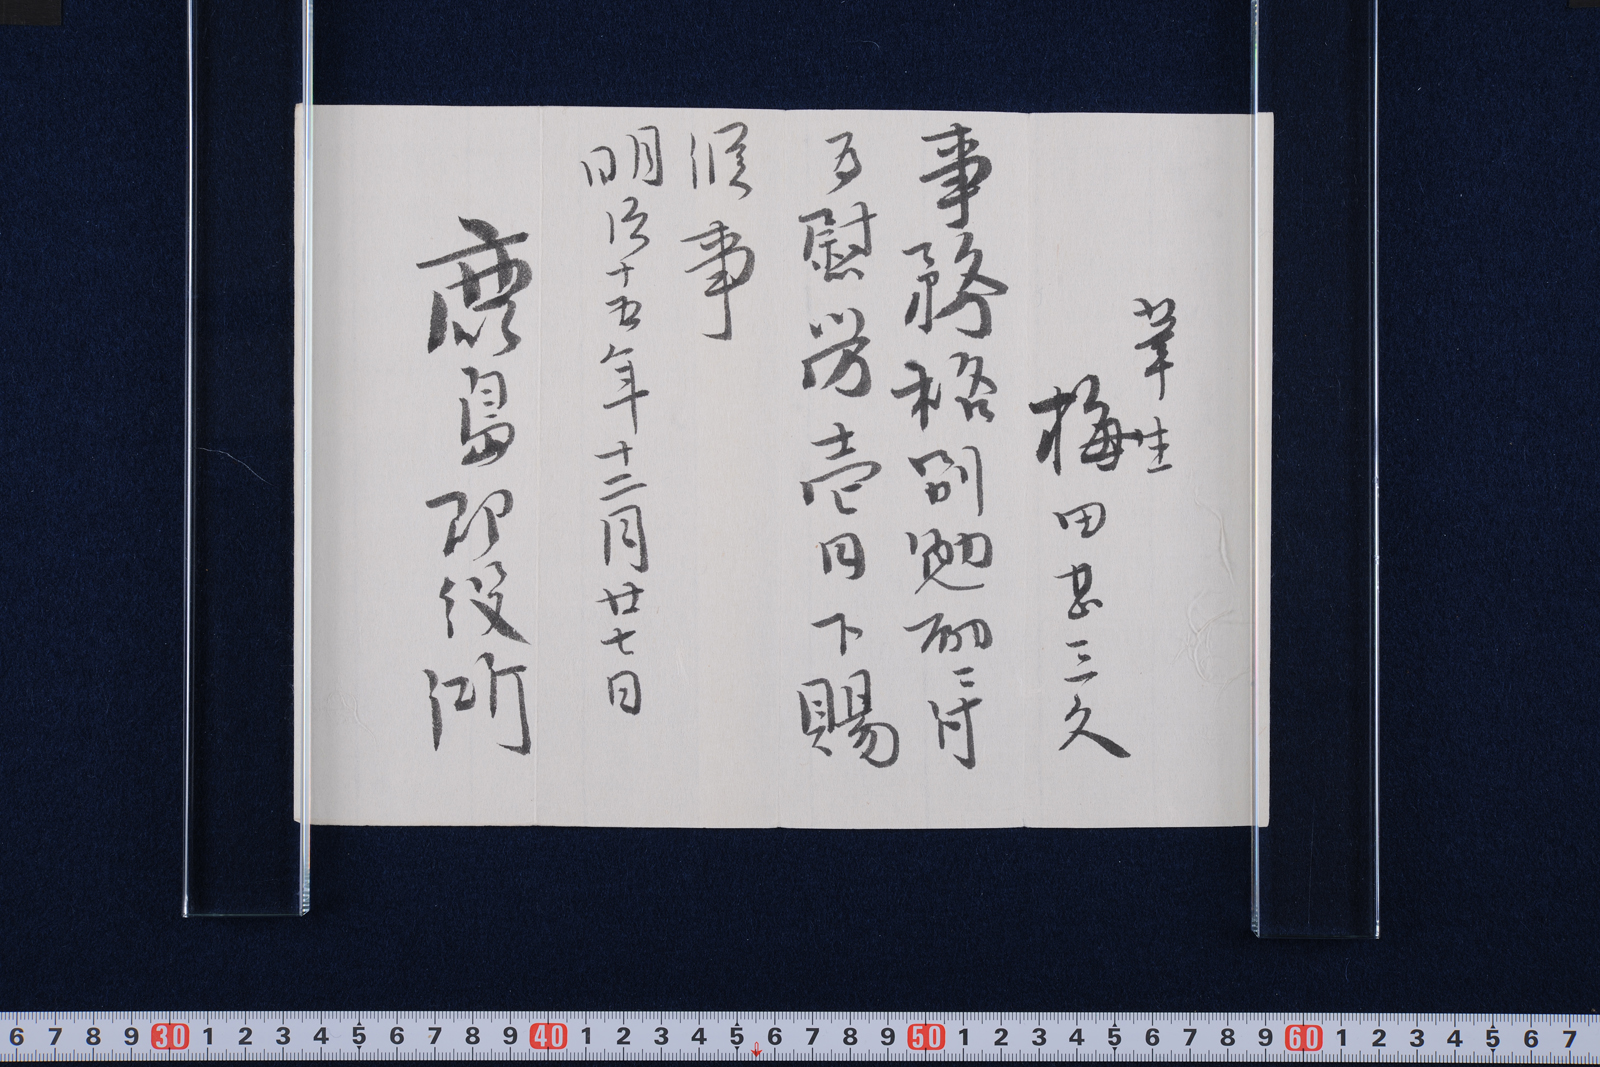 筆生
梅田甚三久
事務格別勉励ニ付
為慰労壱円下賜
候事
明治十五年十二月廿七日
鹿島郡役所
6 7 8 9 30 1 2 3 4 5 6 7 8 9 40 1 2 3 4 5 6 7 8 9 50 1 2 3 4 5 6 7 8 9 60 1 2 3 4 5 6 7